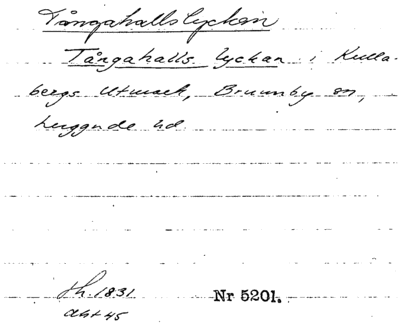 Tångahallslyckan
Tångahalls lyckan i Kulla-
bergs Utmark, Brunnby sn,
Luggude hd
Nr 5201.
1831
akt 45